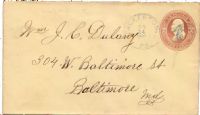 Wm J. C. Dulany
304 W. Baltimore St
Baltimore
Md